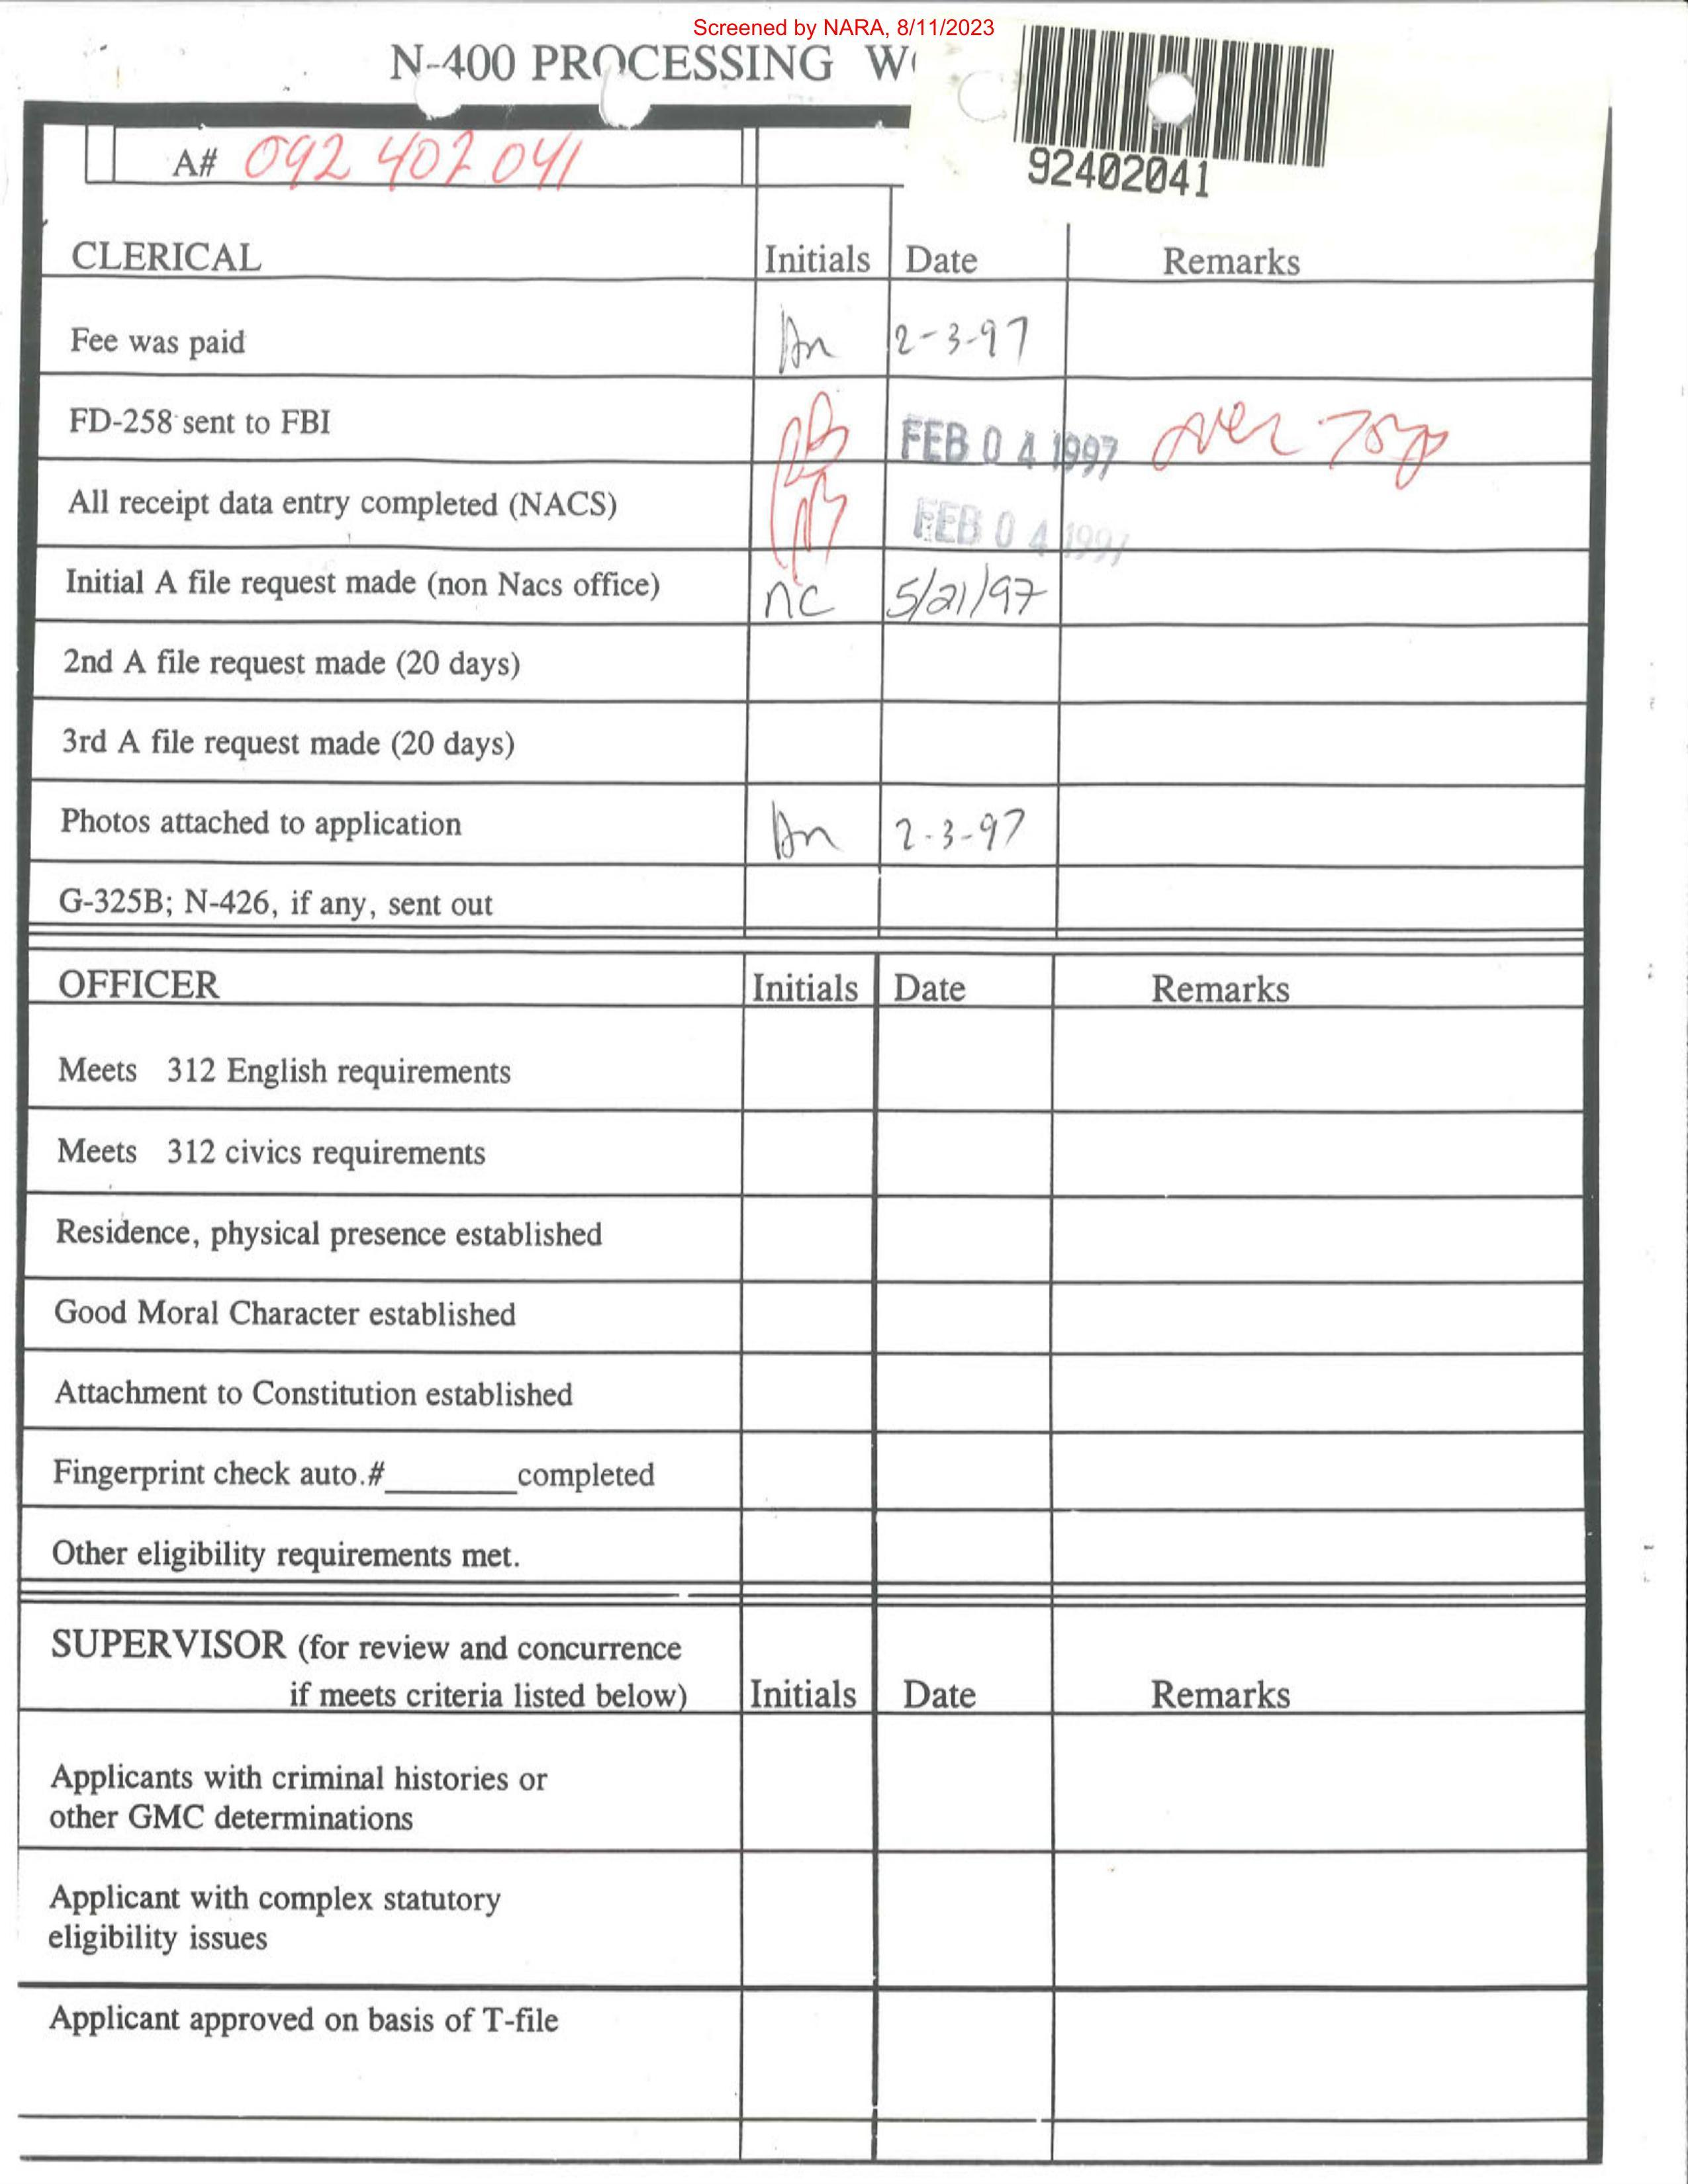 Screened by NARA, 8/11/2023
N-400 PROCESSING W
92402041
A# 092 402 041
CLERICAL Initials Date Remarks
Fee was paid 2-3-97
FD-258 sent to FBI FEB 04 1997 over 75yo
All receipt data entry completed (NACS) FEB 04 1997
Initial A file request made (non Nacs office) nc 5/21/97
2nd A file request made (20 days)
3rd A file request made (20 days)
Photos attached to application 2-3-97
G-325B; N-426, if any, sent out
OFFICER Initials Date Remarks
Meets 312 English requirements
Meets 312 civics requirements
Residence, physical presence established
Good Moral Character established
Attachment to Constitution established
Fingerprint check auto.#________completed
Other eligibility requirements met.
SUPERVISOR (for review and concurrence
if meets criteria listed below) Initials Date Remarks
Applicants with criminal histories or
other GMC determinations
Applicant with complex statutory
eligibility issues
Applicant approved on basis of T-file